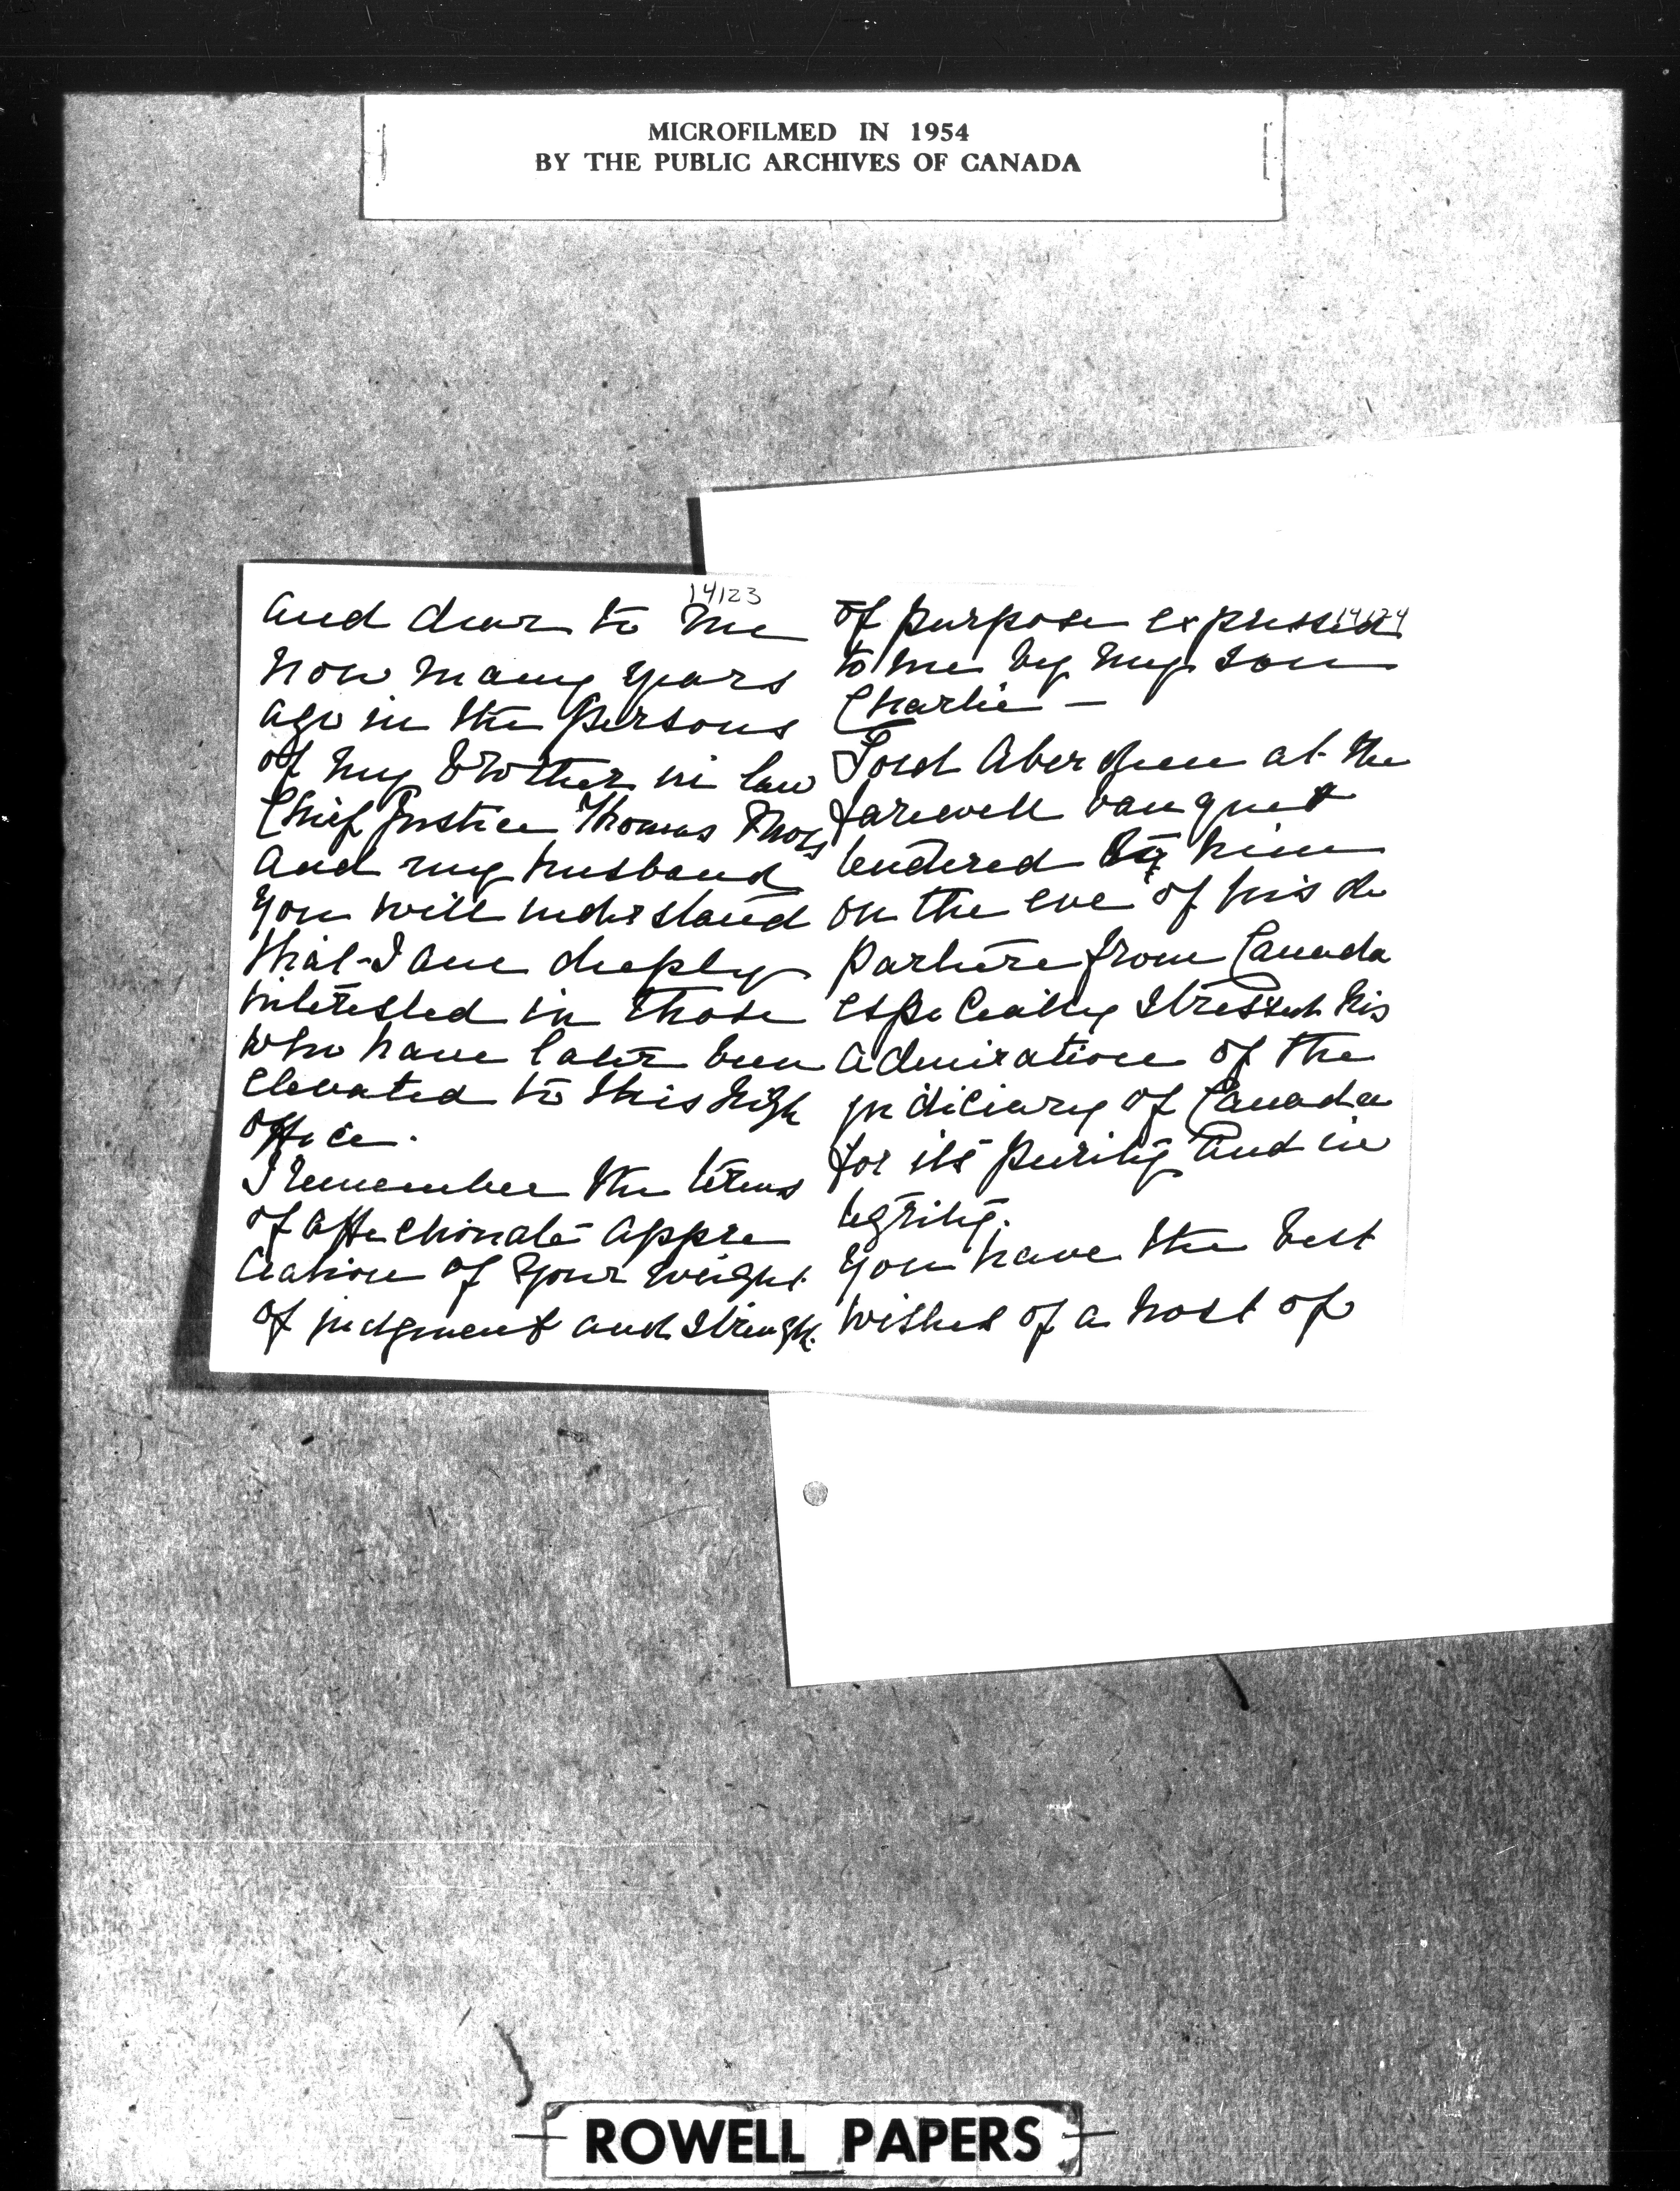 MICROFILMED IN 1954
BY THE PUBLIC ARCHIVES OF CANADA
14123
and dear to me
now many years
ago in the persons
of my brother in law
Chief Justice Thomas Moss
and my husband
you will understand
that I am deeply
interested in those
who have later been
elevated to this high
office.
I remember the terms
of affectionate appre
ciation of your weight
of judgment and strength
14124
of purpose expressed
to me by my son
Charlie —
Lord Aberdeen at the
farewell banquet
tendered to him
on the eve of his de
parture from Canada
especially stressed his
admiration of the
judiciary of Canada
for its purity and in
tegrity.
You have the best
wishes of a host of
ROWELL PAPERS